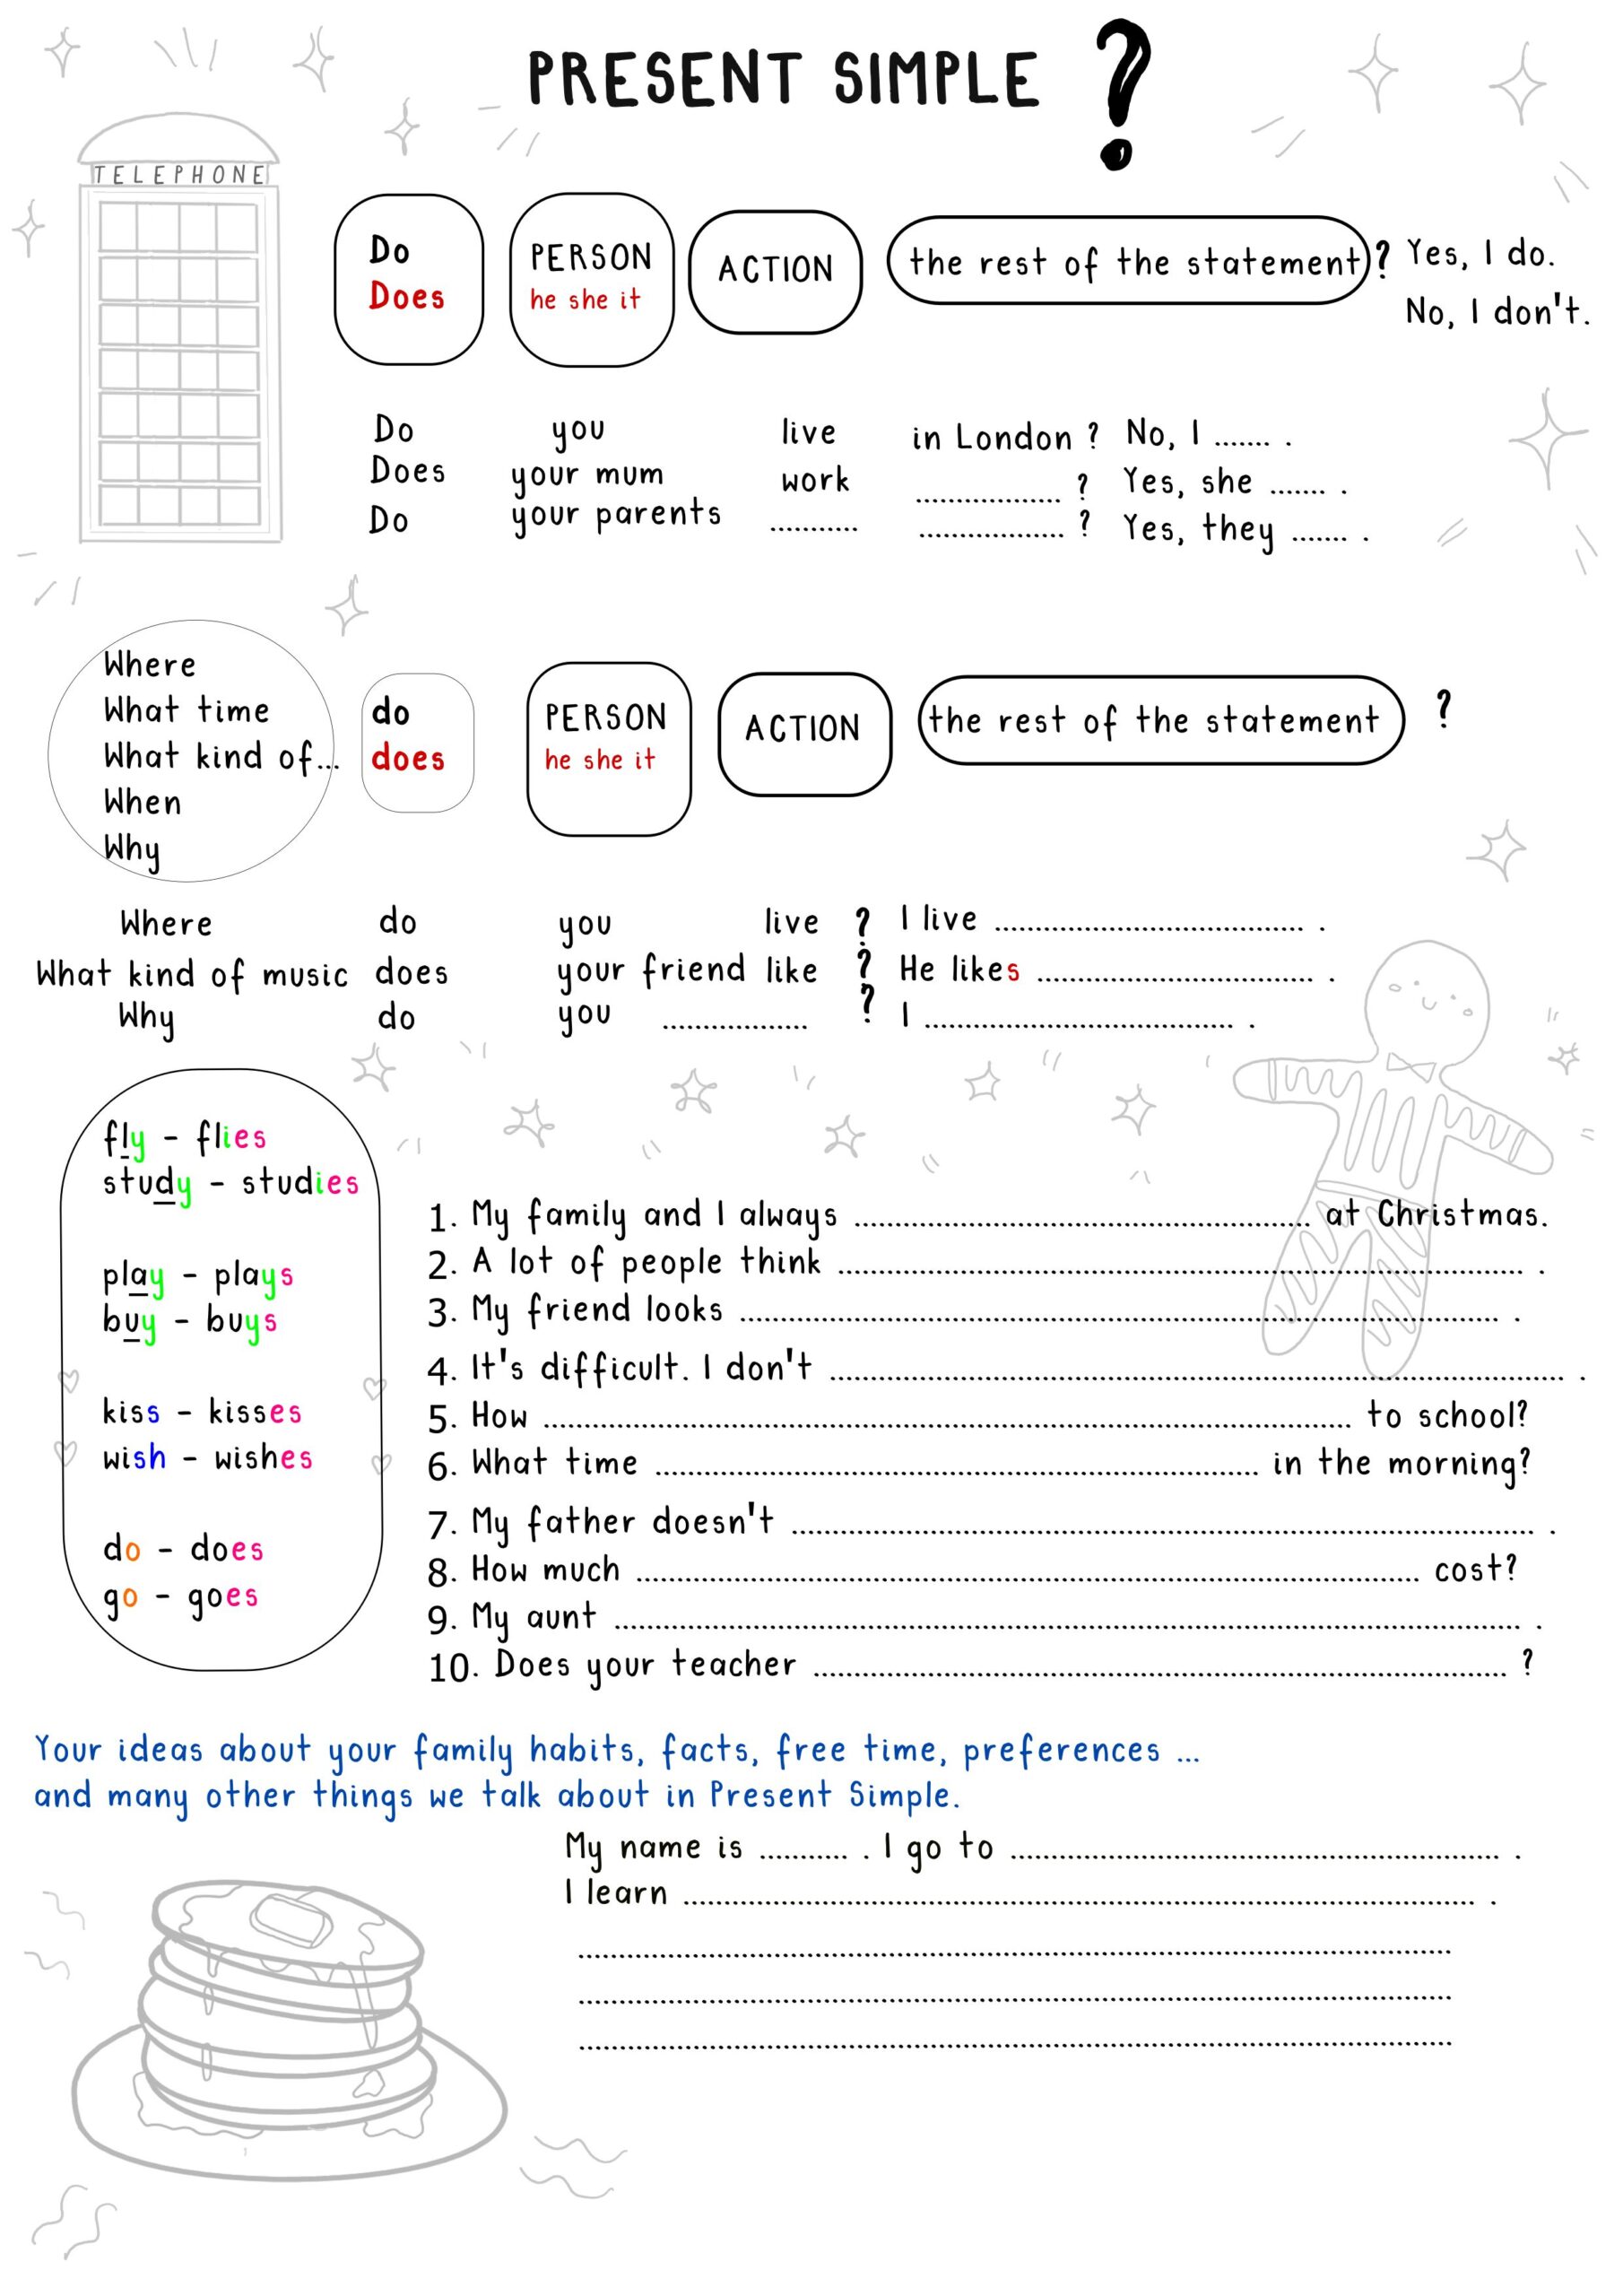 PRESENT SIMPLE ?
TELEPHONE
Do PERSON ACTION the rest of the statement ? Yes, I do.
Does he she it No, I don't.
Do you live in London ? No, I ....... .
Does your mum work .................. ? Yes, she ....... .
Do your parents ........... .................. ? Yes, they ....... .
Where
What time do PERSON ACTION the rest of the statement ?
What kind of... does he she it
When
Why
Where do you live ? I live ....................................... .
What kind of music does your friend like ? He likes ................................... .
Why do you .................. ? I ....................................... .
fly - flies
study - studies
play - plays
buy - buys
kiss - kisses
wish - wishes
do - does
go - goes
1. My family and I always .......................................................... at Christmas.
2. A lot of people think ....................................................................................... .
3. My friend looks ................................................................................................ .
4. It's difficult. I don't ............................................................................................. .
5. How ...................................................................................................... to school?
6. What time ............................................................................ in the morning?
7. My father doesn't .............................................................................................. .
8. How much ................................................................................................... cost?
9. My aunt ................................................................................................................... .
10. Does your teacher ........................................................................................ ?
Your ideas about your family habits, facts, free time, preferences ...
and many other things we talk about in Present Simple.
My name is ........... . I go to .............................................................. .
I learn .................................................................................................... .
...............................................................................................................
...............................................................................................................
...............................................................................................................